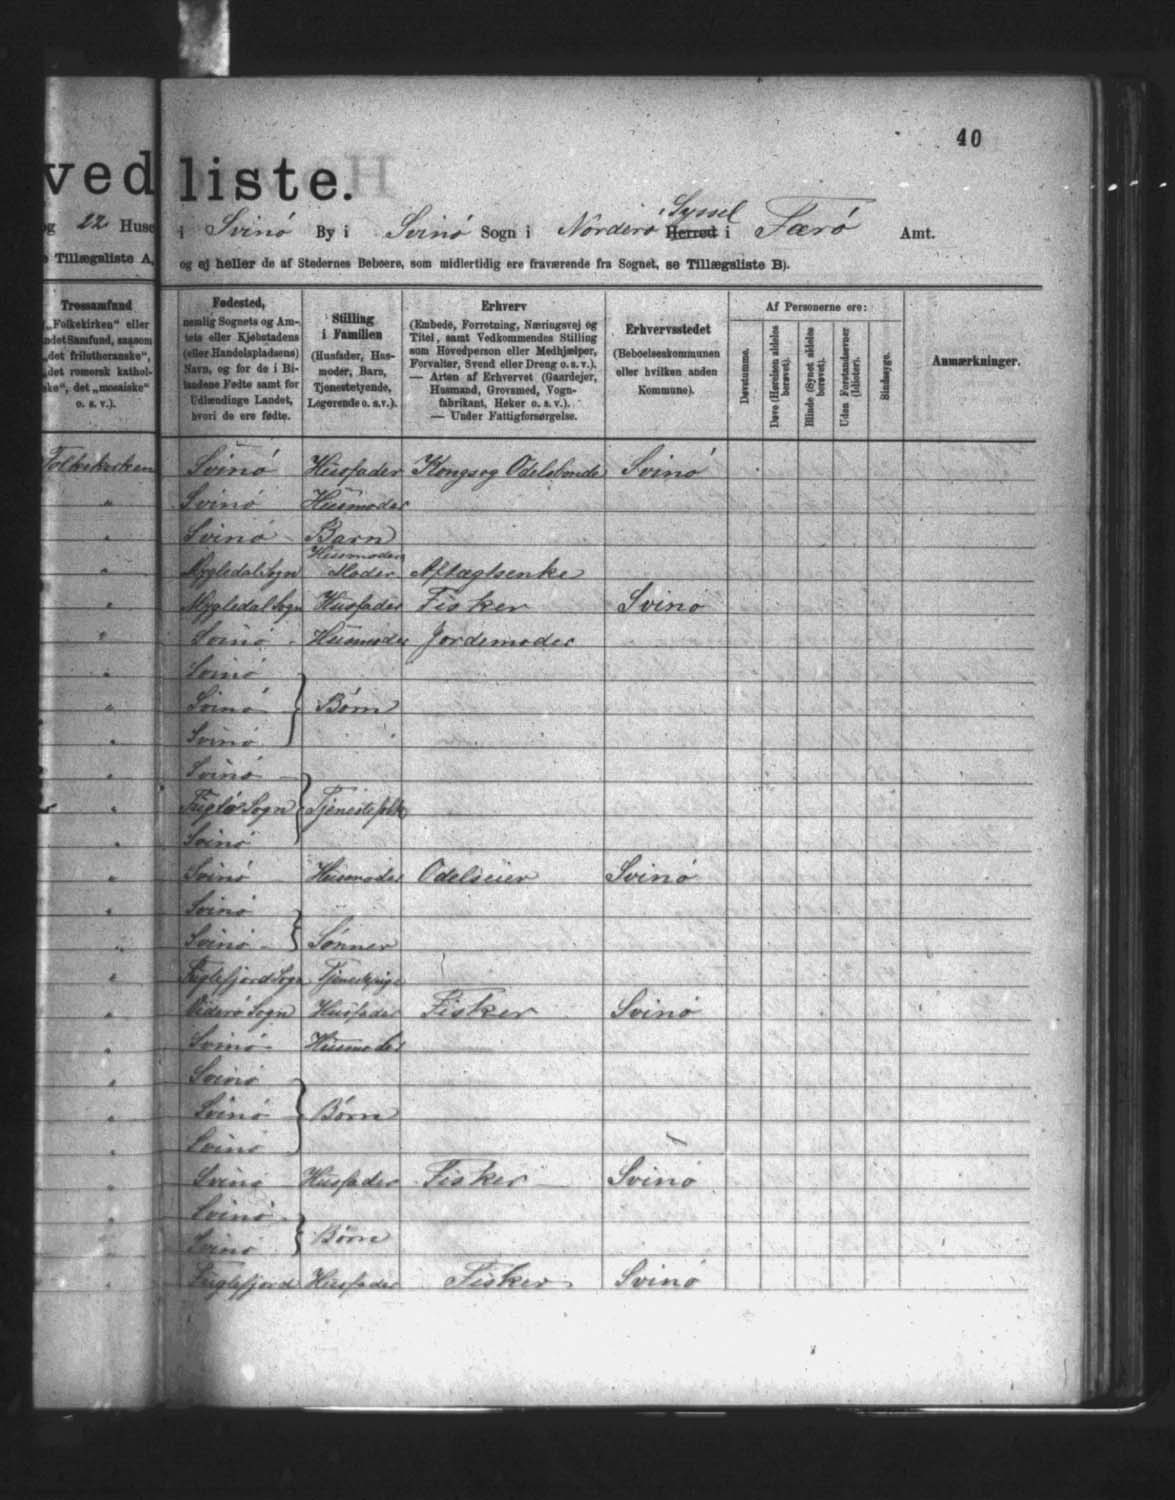 40
ved liste.
og 22 Huse i Svinö By i Svinö Sogn i Norderö Syssel Herred i Færö Amt.
e Tillægsliste A, og ej heller de af Stedernes Beboere, som midlertidig ere fraværende fra Sognet, se Tillægsliste B).
Trossamfund
(„Folkekirken“ eller
andet Samfund, saasom
„det frilutheranske“,
„det romersk kathol-
ske“, det „mosaiske“
o. s. v.).
Fødested,
nemlig Sognets og Am-
tets eller Kjøbstadens
(eller Handelspladsens)
Navn, og for de i Bi-
landene Fødte samt for
Udlændinge Landet,
hvori de ere fødte.
Stilling
i Familien
(Husfader, Hus-
moder, Barn,
Tjenestetyende,
Logerende o. s. v.).
Erhverv
(Embede, Forretning, Næringsvej og
Titel, samt Vedkommendes Stilling
som Hovedperson eller Medhjælper,
Forvalter, Svend eller Dreng o. s. v.).
— Arten af Erhvervet (Gaardejer,
Husmand, Grovsmed, Vogn-
fabrikant, Høker o. s. v.).
— Under Fattigforsørgelse.
Erhvervsstedet
(Beboelseskommunen
eller hvilken anden
Kommune).
Af Personerne ere:
Døvstumme.
Døve (Hørelsen aldeles berøvet).
Blinde (Synet aldeles berøvet).
Uden Forstandsevner (Idioter).
Sindssyge.
Anmærkninger.
Folkekirken Svinö Husfader Kongs og Odelsbonde Svinö
" Svinö Husmoder
" Svinö Barn
" Mygledal Sogn Husmoders Moder Aftægtsenke
" Mygledal Sogn Husfader Fisker Svinö
" Svinö Husmoder Jordemoder
" Svinö
" Svinö } Börn
" Svinö
" Svinö
" Fuglö Sogn } Tjenestefolk
" Svinö
" Svinö Husmoder Odelseier Svinö
" Svinö
" Svinö } Sönner
" Fuglefjord Sogn Tjenestepige
" Viderö Sogn Husfader Fisker Svinö
" Svinö Husmoder
" Svinö
" Svinö } Börn
" Svinö
" Svinö Husfader Fisker Svinö
" Svinö
" Svinö } Börn
" Fuglefjord Husfader Fisker Svinö